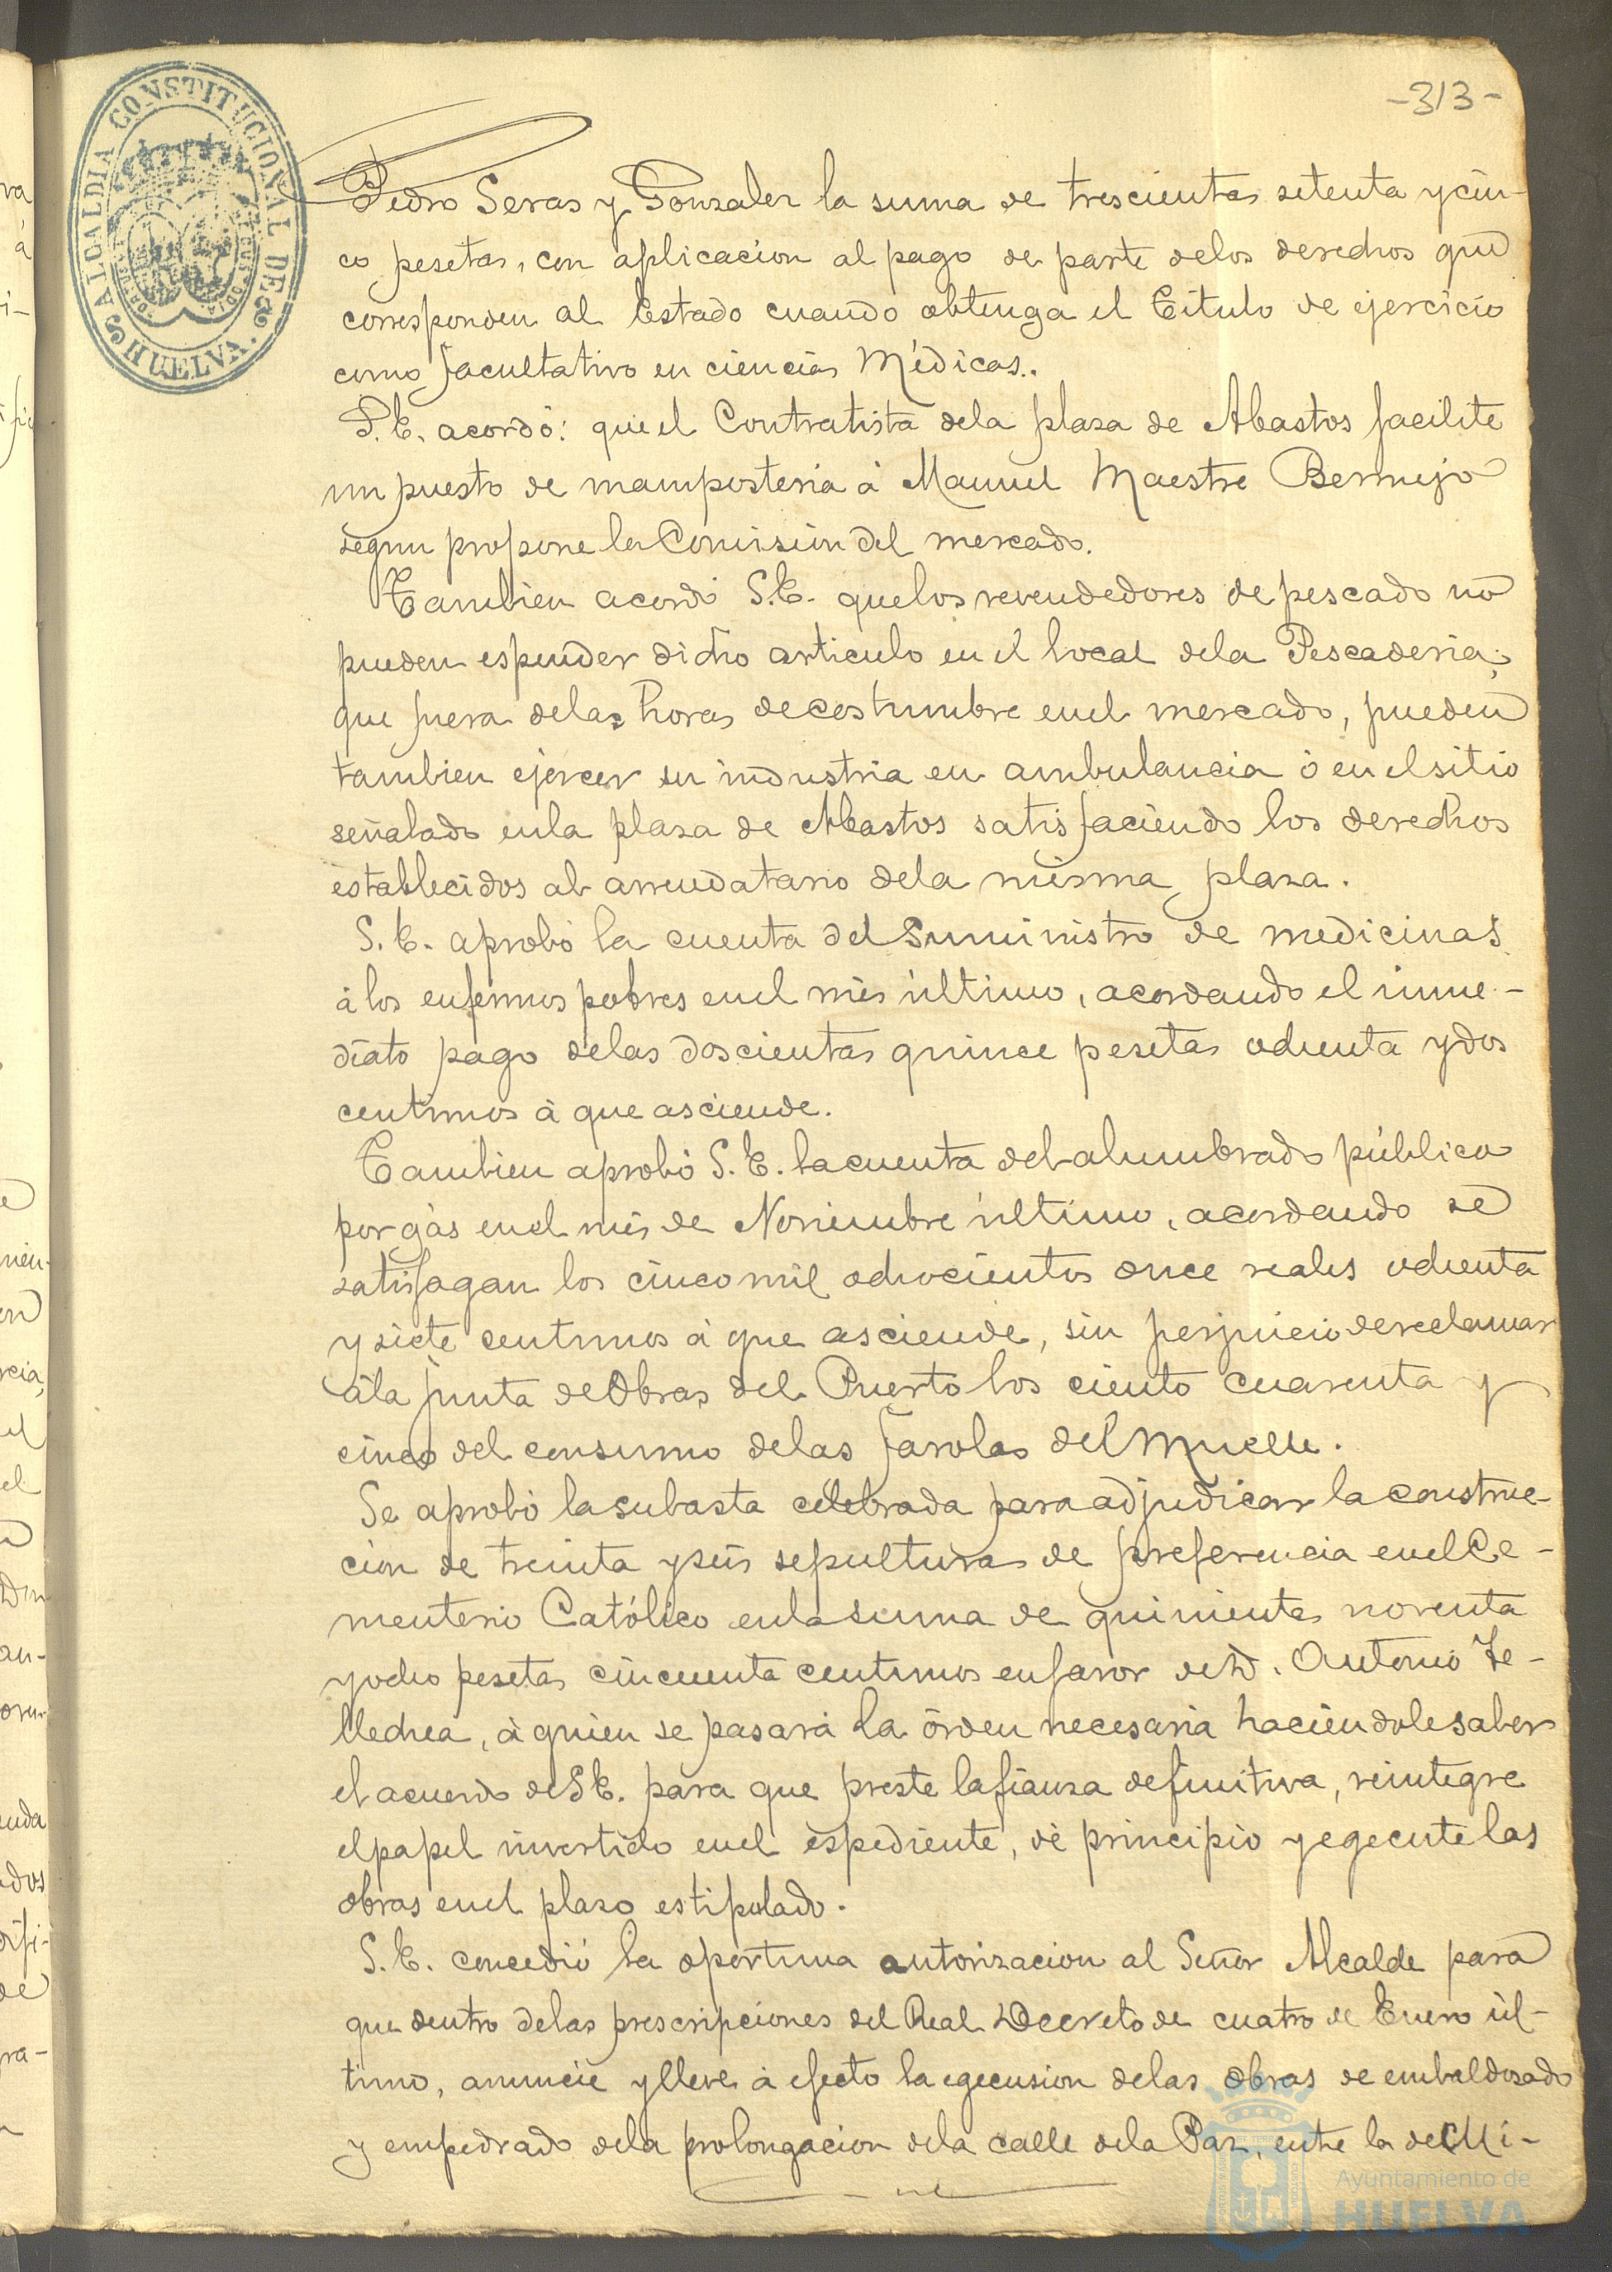 -313-
ALCALDIA CONSTITUCIONAL DE
HUELVA.
Pedro Seras y Gonzalez la suma de trescientas setenta y cin-
co pesetas, con aplicacion al pago de parte delos derechos que
corresponden al Estado cuando obtenga el Titulo de ejercicio
como facultativo en ciencias Médicas.
S.E. acordó: que el Contratista dela plaza de Abastos facilite
un puesto de mamposteria á Manuel Maestre Bermejo
segun propone la Comision del mercado.
Tambien acordó S.E. que los revendedores de pescado no
pueden espender dicho articulo en el local dela Pescaderia;
que fuera delas horas de costumbre en el mercado, pueden
tambien ejercer su industria en ambulancia ó en el sitio
señalado enla plaza de Abastos satisfaciendo los derechos
establecidos al arrendatario dela misma plaza.
S.E. aprobó la cuenta del Suministro de medicinas
á los enfermos pobres en el mes último, acordando el inme-
diato pago delas doscientas quince pesetas ochenta y dos
centimos á que asciende.
Tambien aprobó S.E. la cuenta del alumbrado público
por gás en el mes de Noviembre último, acordando se
satisfagan los cinco mil ochocientos once reales ochenta
y siete centimos á que asciende, sin perjuicio de reclamar
ála junta de Obras del Puerto los ciento cuarenta y
cinco del consumo delas farolas del Muelle.
Se aprobó la subasta celebrada para adjudicar la construc-
cion de treinta y seis sepulturas de preferencia en el Ce-
menterio Católico en la suma de quinientas noventa
y ocho pesetas cincuenta centimos en favor de D. Antonio Te-
llechea, á quien se pasará la órden necesaria haciéndole saber
el acuerdo de S.E. para que preste la fianza definitiva, reintegre
el papel invertido en el espediente, dé principio y egecute las
obras en el plazo estipulado.
S.E. concedió la oportuna autorizacion al Señor Alcalde para
que dentro delas prescripciones del Real Decreto de cuatro de Enero úl-
timo, anuncie y lleve á efecto la egecusion delas obras de embaldosado
y empedrado dela prolongacion dela calle dela Paz, entre la de Mi-
Ayuntamiento de
HUELVA